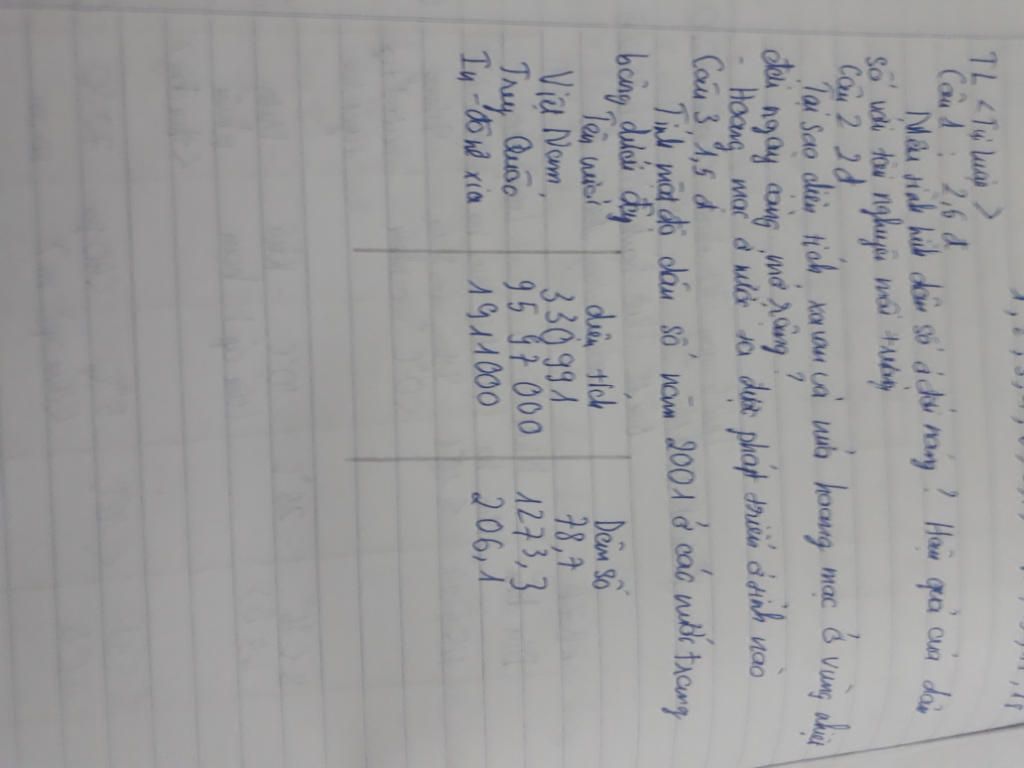 TL <Tự luận>
Câu 1: 2,5 đ
Nêu tình hình dân số ở đới nóng? Hậu quả của dân
số với tài nguyên môi trường
Câu 2 2đ
Tại sao diện tích xavan và nửa hoang mạc ở vùng nhiệt
đới ngày càng mở rộng?
- Hoang mạc ở nước ta được phát triển ở tỉnh nào
Câu 3 1,5 đ
Tính mật độ dân số năm 2001 ở các nước trong
bảng dưới đây
Tên nước diện tích Dân số
Việt Nam 330991 78,7
Trung Quốc 9597000 1273,3
In-đô-nê xia 1911000 206,1